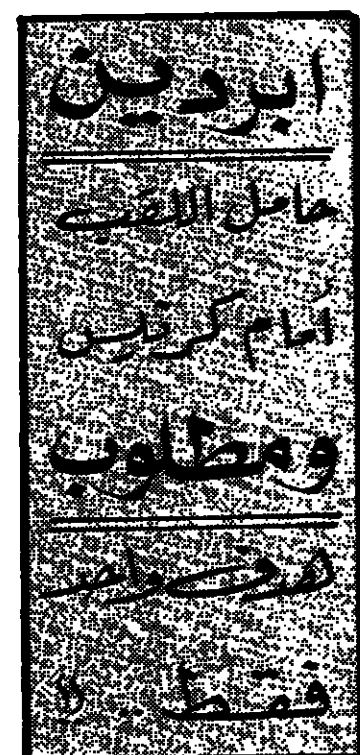 ابردين
حامل اللقب
أمام كرنلس
ومطلوب
هدف واحد
فقط . لا